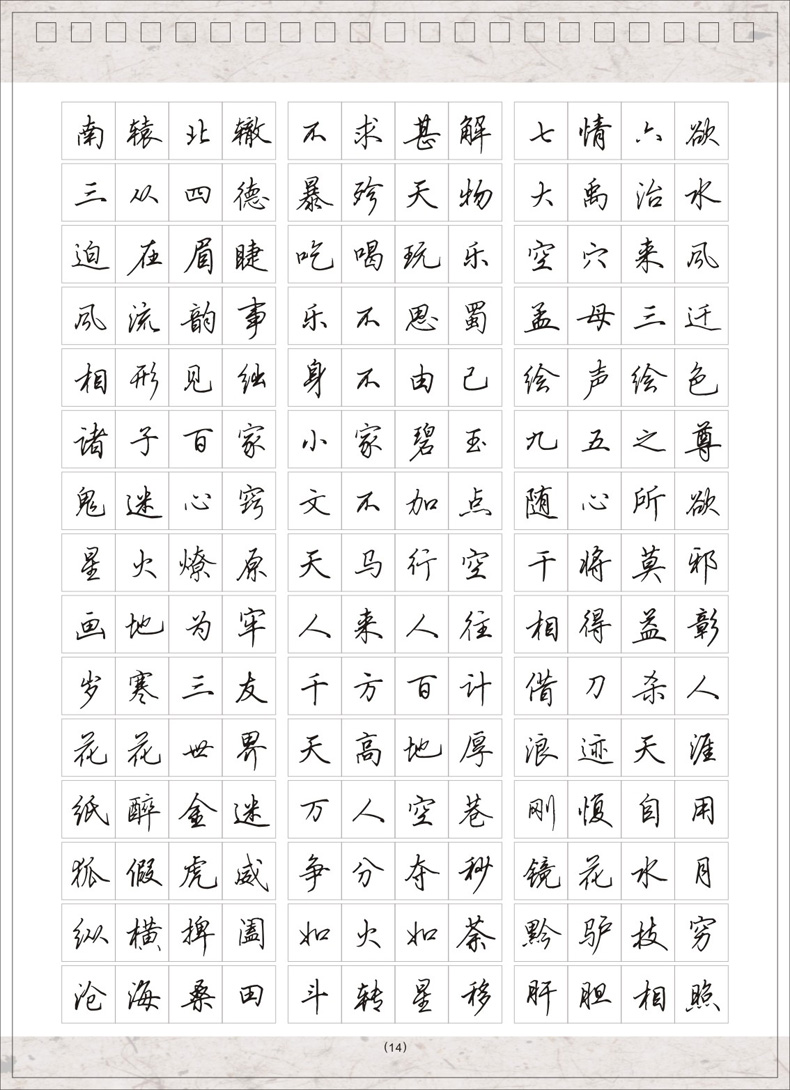 南辕北辙 不求甚解 七情六欲
三从四德 暴殄天物 大禹治水
迫在眉睫 吃喝玩乐 空穴来风
风流韵事 乐不思蜀 孟母三迁
相形见绌 身不由己 绘声绘色
诸子百家 小家碧玉 九五之尊
鬼迷心窍 文不加点 随心所欲
星火燎原 天马行空 干将莫邪
画地为牢 人来人往 相得益彰
岁寒三友 千方百计 借刀杀人
花花世界 天高地厚 浪迹天涯
纸醉金迷 万人空巷 刚愎自用
狐假虎威 争分夺秒 镜花水月
纵横捭阖 如火如荼 黔驴技穷
沧海桑田 斗转星移 肝胆相照
(14)